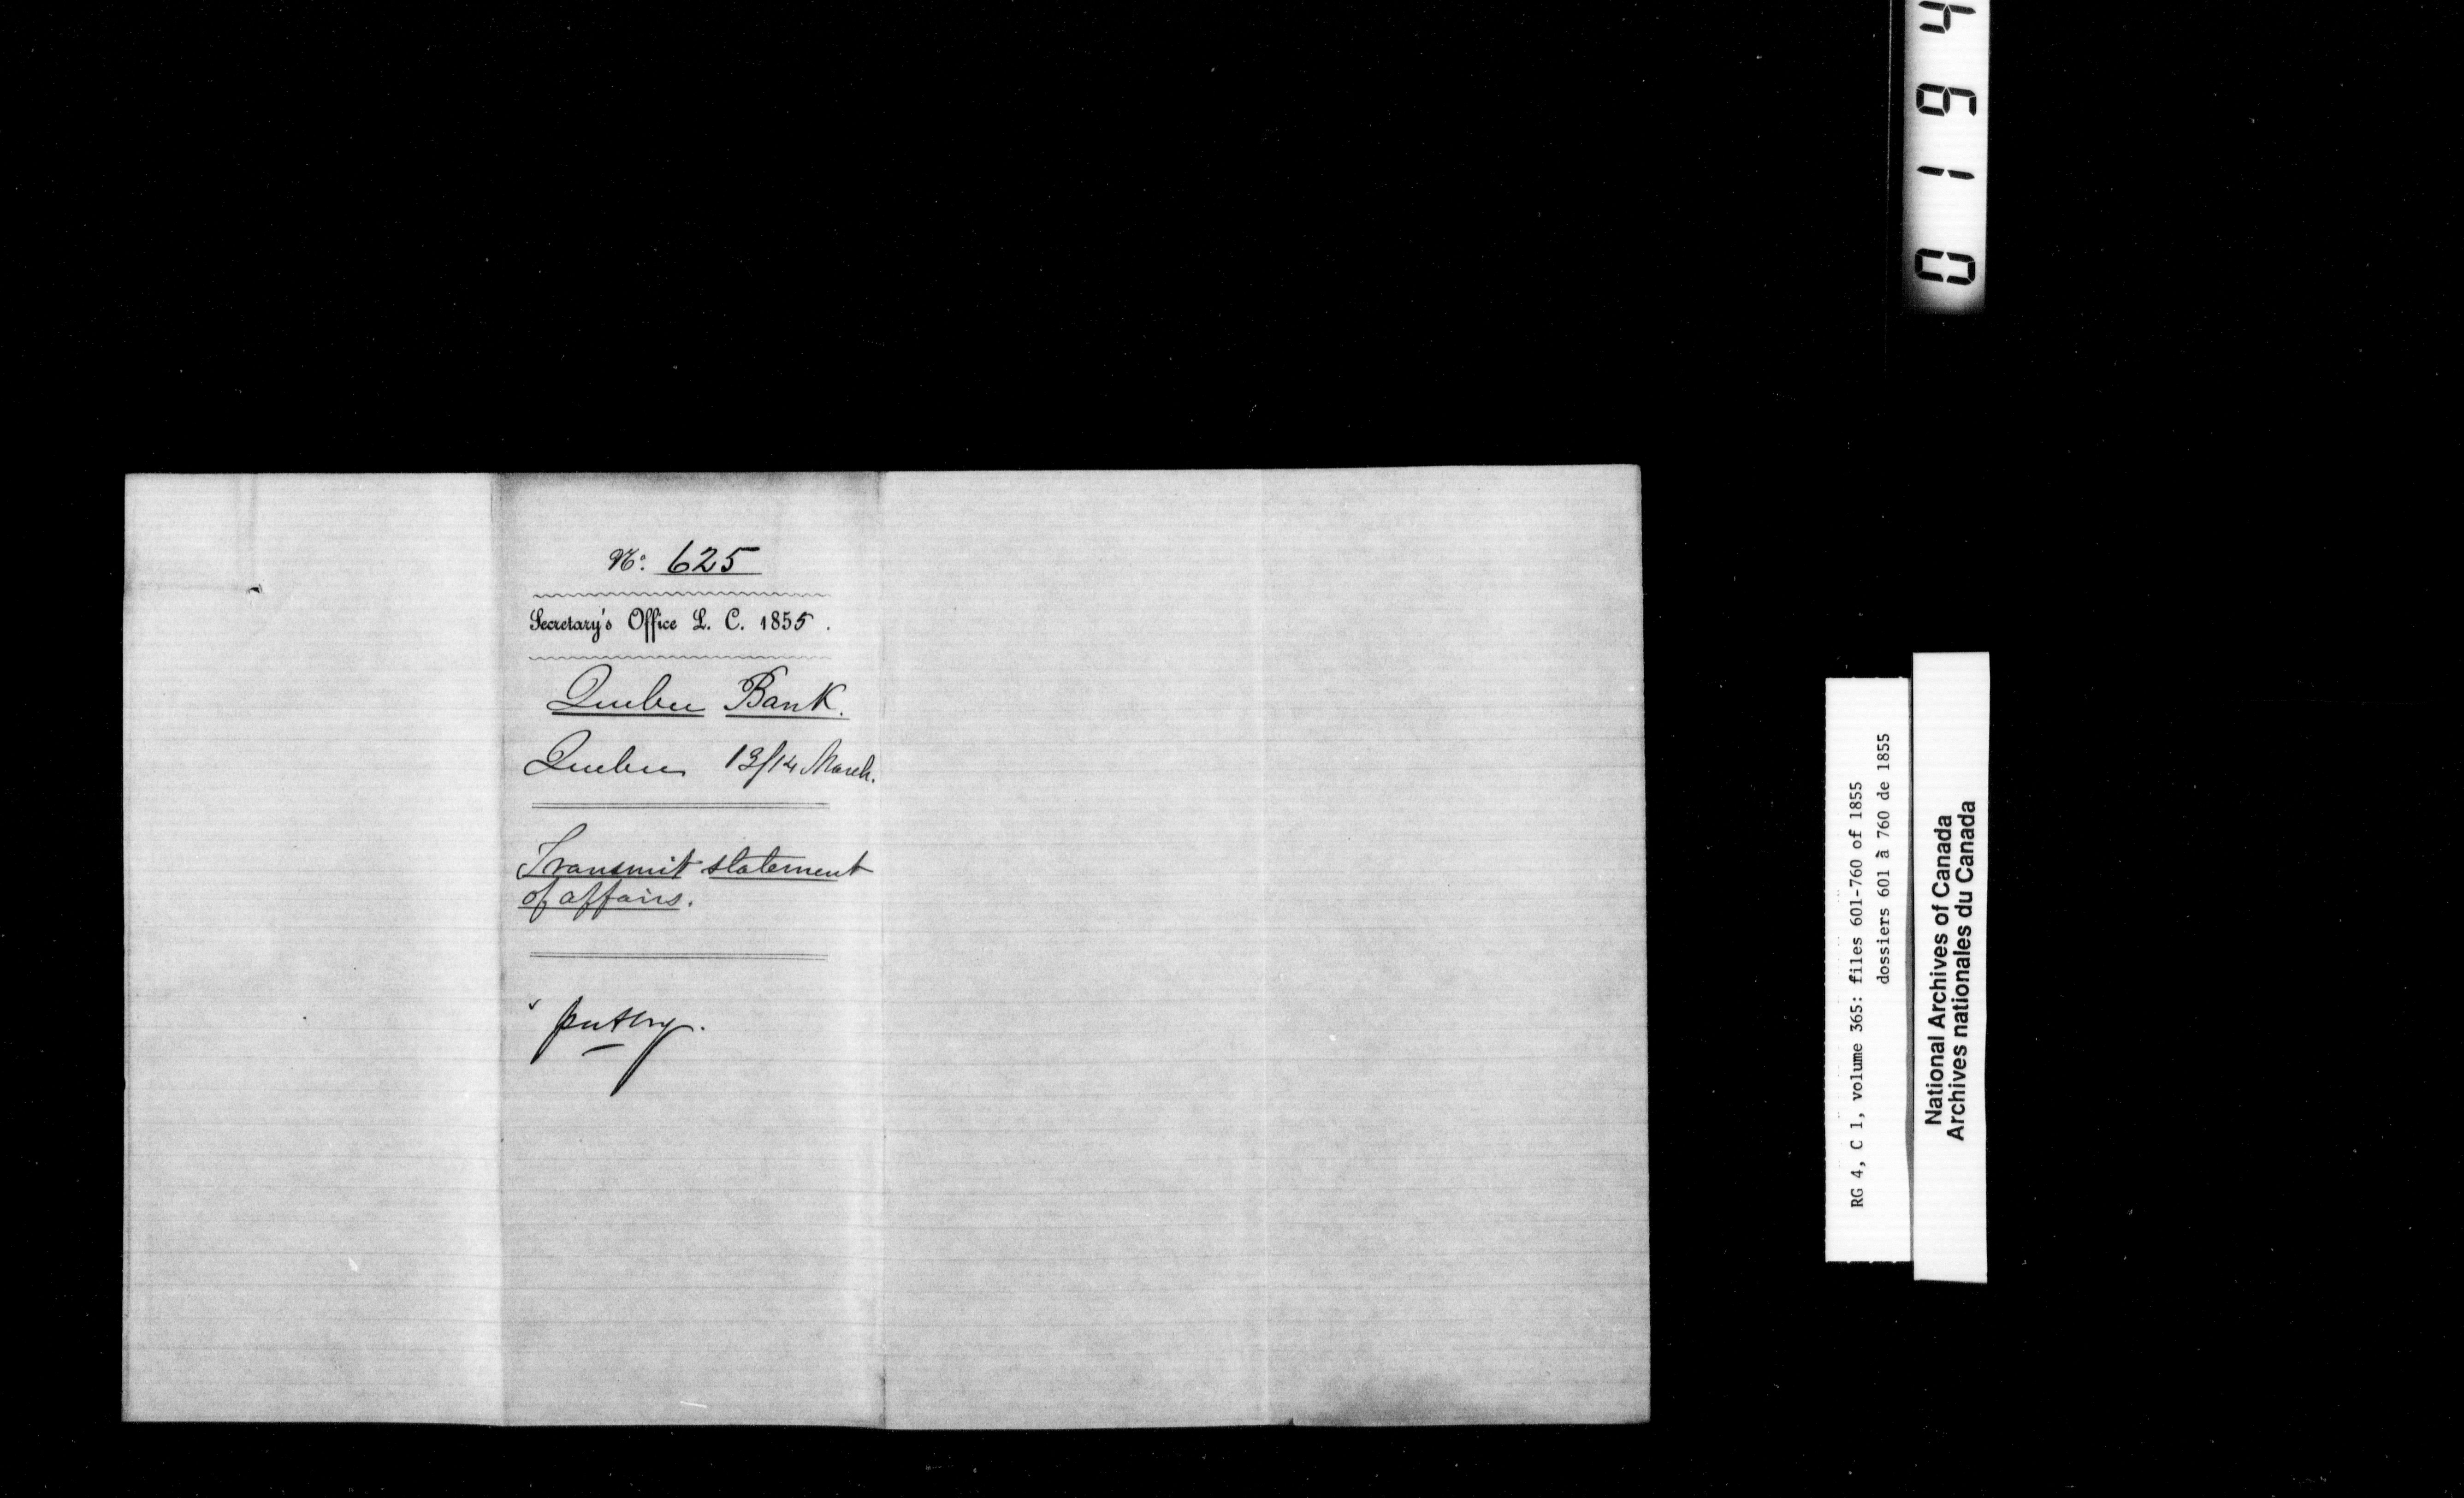 No. 625
Secretary's Office L. C. 1855.
Quebec Bank.
Quebec 13/14 March.
Transmit statement
of affairs.
0194
RG 4, C 1, volume 365: files 601-760 of 1855
dossiers 601 à 760 de 1855
National Archives of Canada
Archives nationales du Canada